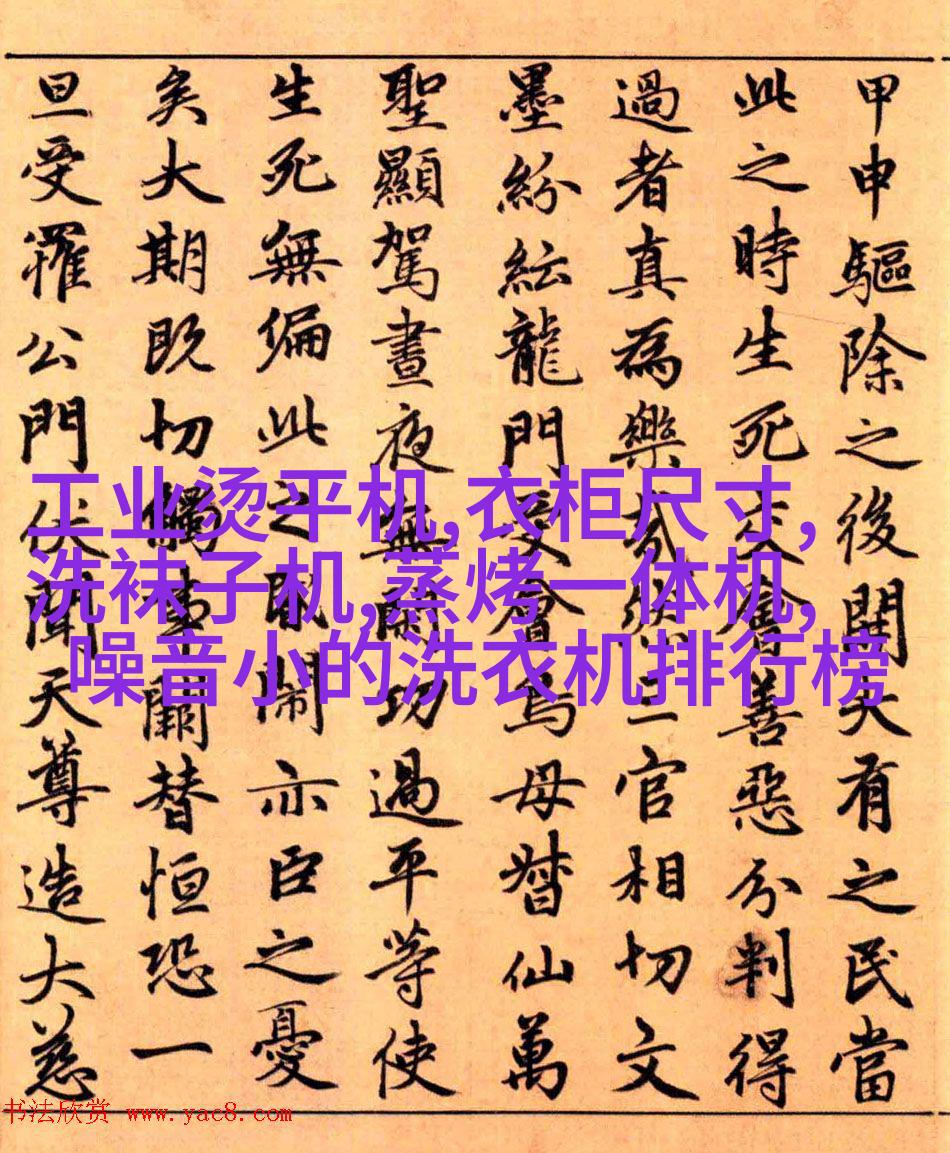 甲申驅除之後開大有之民當
此之時生死交會善惡分判得
過者真為樂哉然三官相切文
墨紛紜龍門受會烏母督仙萬
聖顯駕晝夜無閑功過平等使
生死無偏此之閙亦臣之憂
矣大期既切觸事闕替恒恐一
旦受罹公門伏聞天尊造大慈
工业烫平机,衣柜尺寸,
洗袜子机,蒸烤一体机,
噪音小的洗衣机排行榜
书法欣赏 www.yac8.com